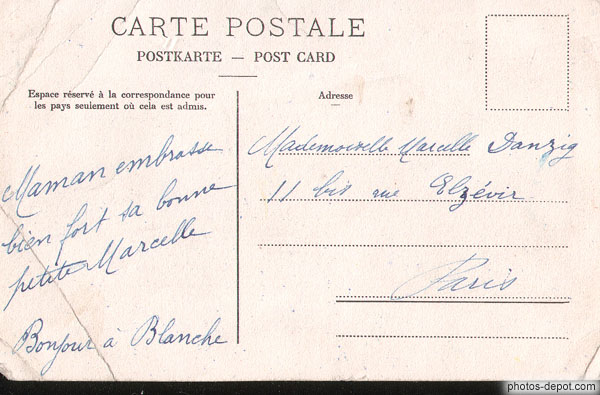 CARTE POSTALE
POSTKARTE — POST CARD
Espace réservé à la correspondance pour
les pays seulement où cela est admis.
Adresse
Maman embrasse
bien fort sa bonne
petite Marcelle
Bonjour à Blanche
Mademoiselle Marcelle Danzig
11 bis rue Elzévir
Paris
photos-depot.com